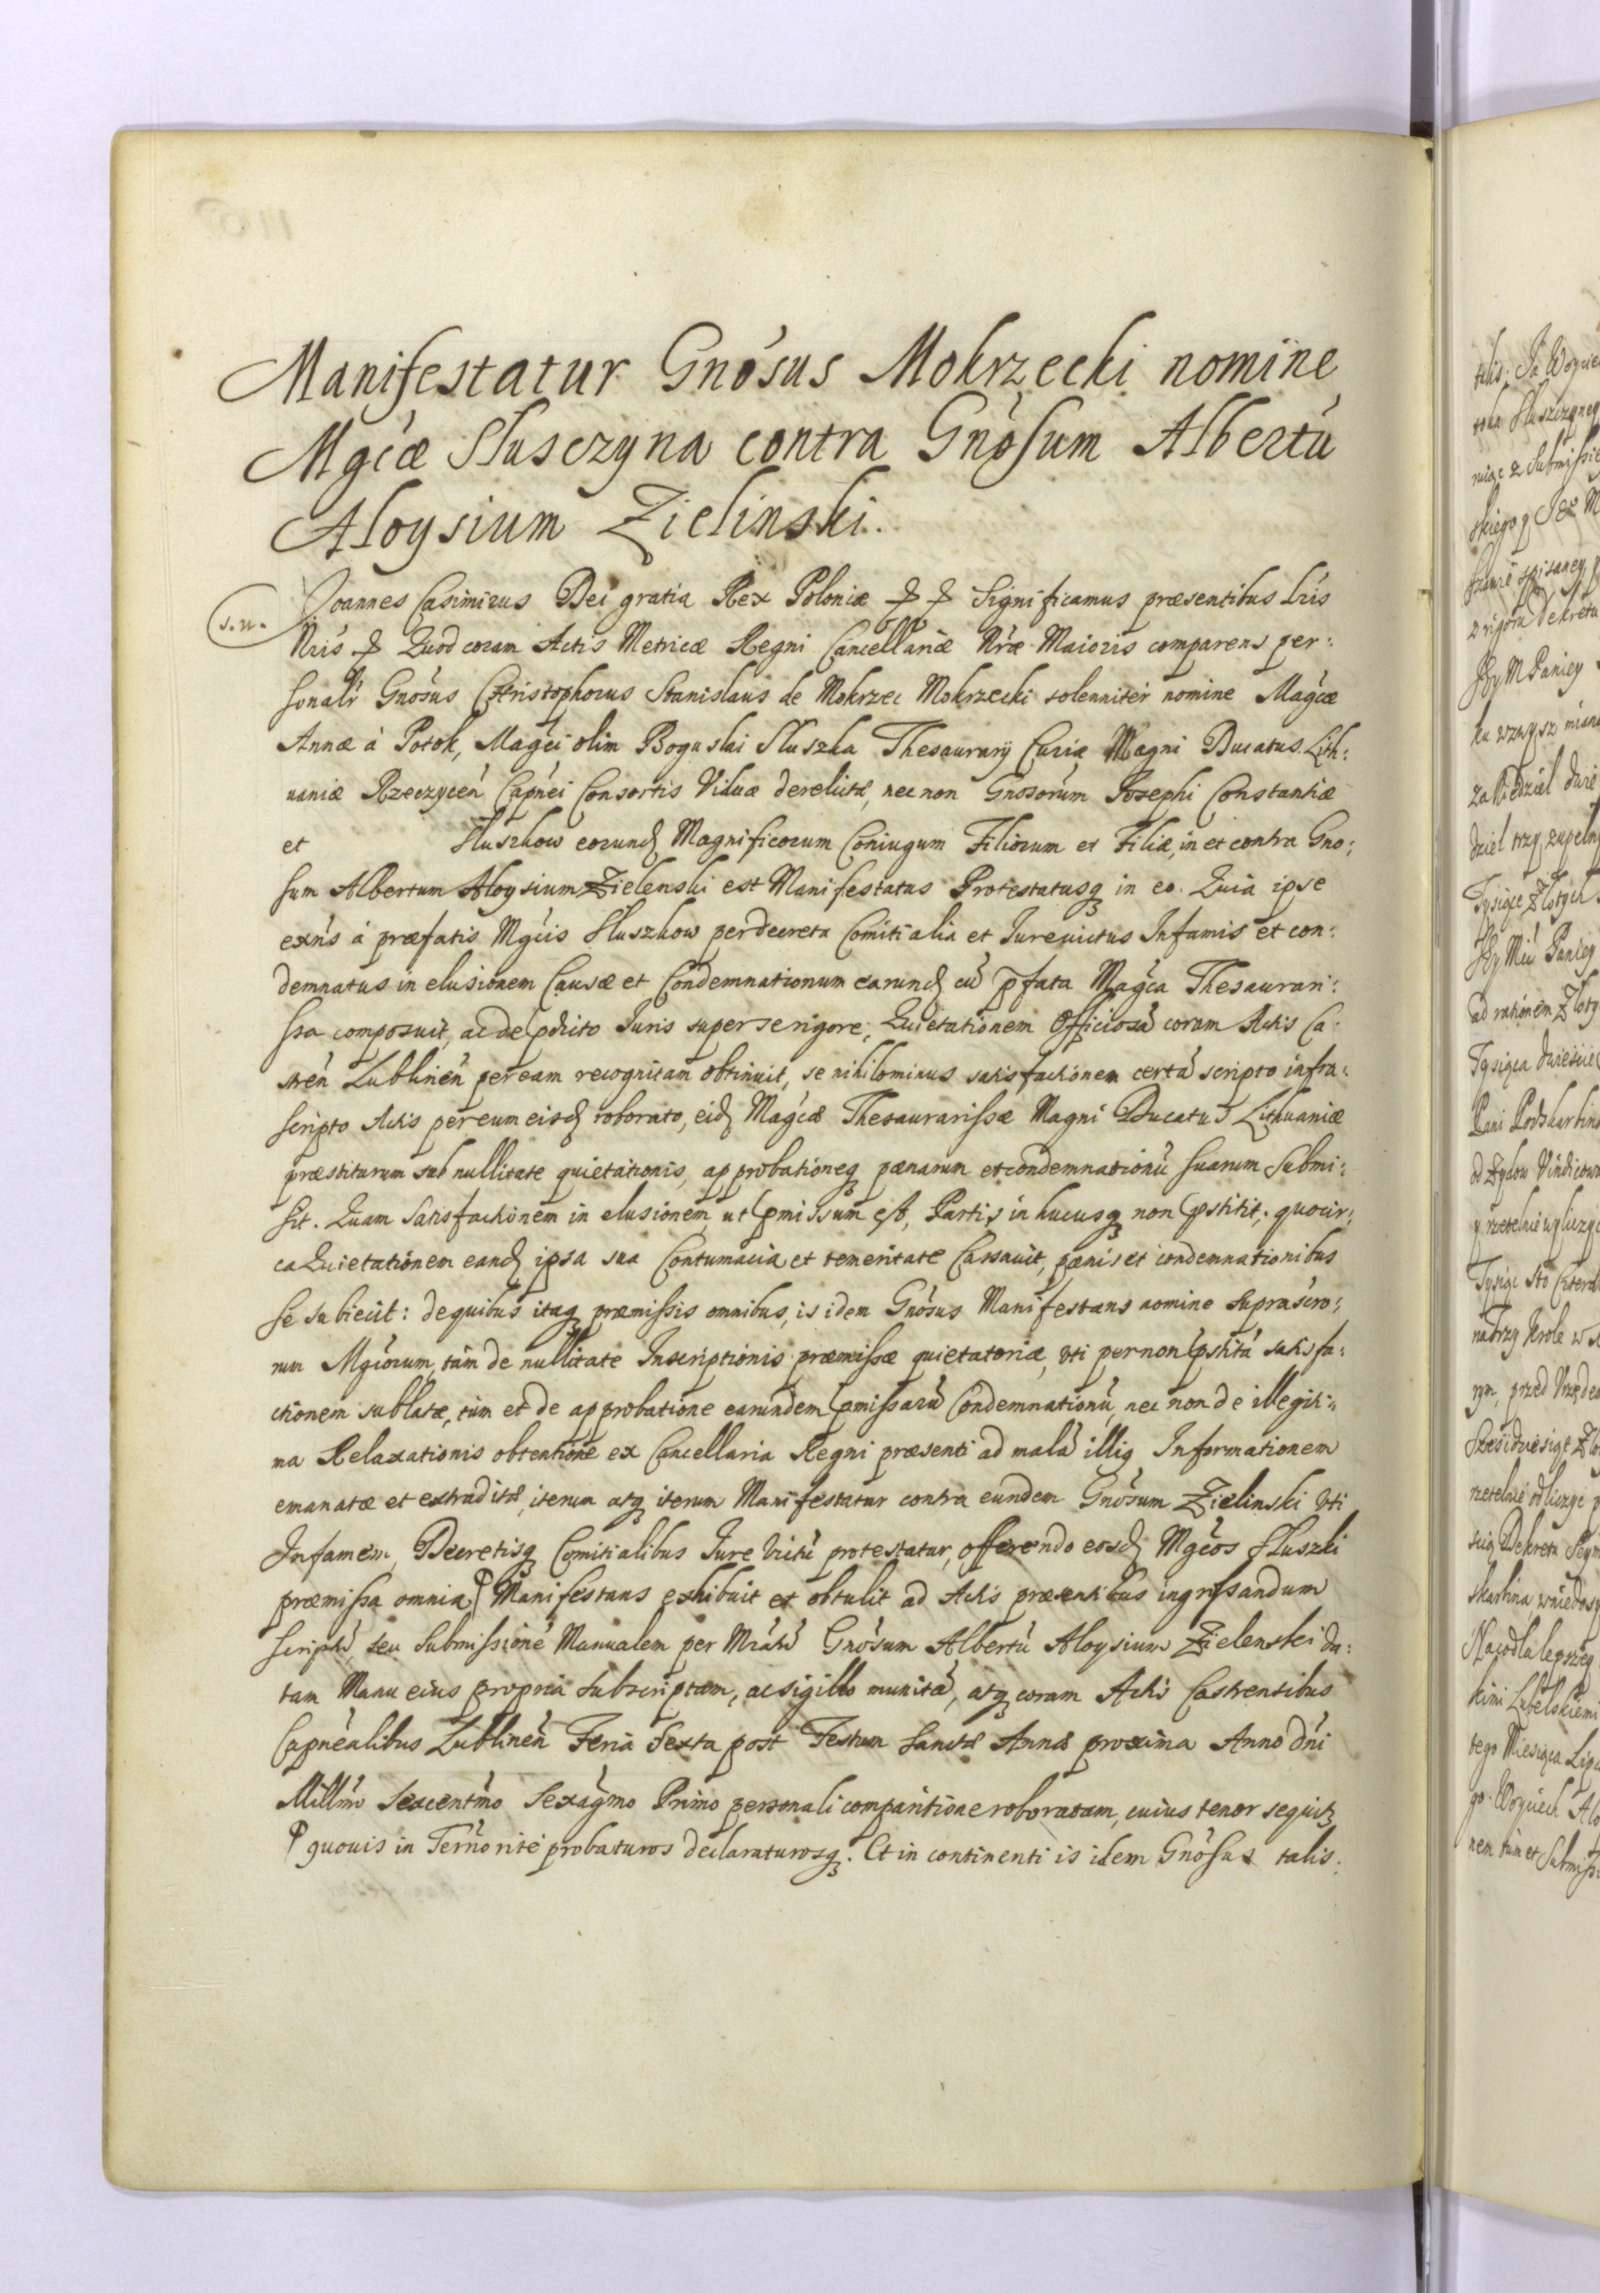 Manifestatur Gnosus Mokrzecki nomine
Mgcæ Słusczyna contra Gnosum Albertū
Aloysium Zielinski.
s. n.
Joannes Casimirus Dei gratia Rex Poloniæ Significamus præsentibus Lris
Nris Quod coram Actis Metricæ Regni Cancellariæ Nræ Maioris comparens per:
sonalr Gnosus Christophorus Stanislaus de Mokrzec Mokrzecki solenniter nomine Magcæ
Annæ à Potok, Magci olim Boguslai Słuszka Thesaurarij Curiæ Magni Ducatus Lith:
uaniæ Rzeczyceń Capnei Consortis Viduæ derelictæ, nec non Gnosorum Josephi Constantiæ
et Słuszkow eorund Magnificorum Coniugum Filiorum et Filiæ, in et contra Gno:
sum Albertum Aloysium Zielenski est Manifestatus Protestatusq in eo. Quia ipse
exns à præfatis Mgcis Słuszkow per decreta Comitialia et Jurevictus Infamis et con:
demnatus in elusionem Causæ et Condemnationum earund cū pfata Magca Thesaurari:
ssa composuit, ac de pdicto Juris super se rigore, Quietationem Officiosā coram Actis Ca:
stren Lublinen per eam recognitam obtinuit, se nihilominus satisfactionem certā scripto infra:
scripto Actis per eum eisd roborato, eid Magcæ Thesaurarissæ Magni Ducatus Lithuaniæ
præstiturum sub nullitate quietationis, approbationeq pænarum et condemnationū suarum submi:
sit. Quam Satisfactionem in elusionem, ut pmissum est, Partis in hucusq non pstitit, quocir:
ca Quietationem eand ipsa sua Contumacia et temeritate Cassauit, pænis et condemnationibus
se subiecit: de quibus itaq præmissis omnibus, is idem Gnosus Manifestans nomine suprascro:
rum Mgcorum, tam de nullitate Inscriptionis præmissæ quietatoriæ, vti per non pstitā satisfa:
ctionem sublatæ, tum et de approbatione earundem pmissarū Condemnationū, nec non de illegiti:
ma Relaxationis obtentione ex Cancellaria Regni præsenti ad malā illiq Informationem
emanatæ et extraditæ, iterum atq iterum Manifestatur contra eundem Gnosum Zielinski vti
Infamem, Decretisq Comitialibus Jure Victū protestatur, offerendo eosd Mgcos Słuszki
præmissa omnia Manifestans exhibuit et obtulit ad Actis præsentibus ingrossandum
scriptū, seu Submissionē Manualem per Mratū Gnosum Albertū Aloysium Zielenski da:
tam Manu eius propria subscriptam, ac sigillo munitā, atq coram Actis Castrensibus
Capnealibus Lublinen Feria Sexta post Festum Sanctæ Annæ proxima Anno Dni
Millmo Sexcentmo Sexagmo Primo personali comparitione roboratam, cuius tenor sequit
quouis in Termo rite probaturos declaraturosq. Et in continenti is idem Gnosus talis: